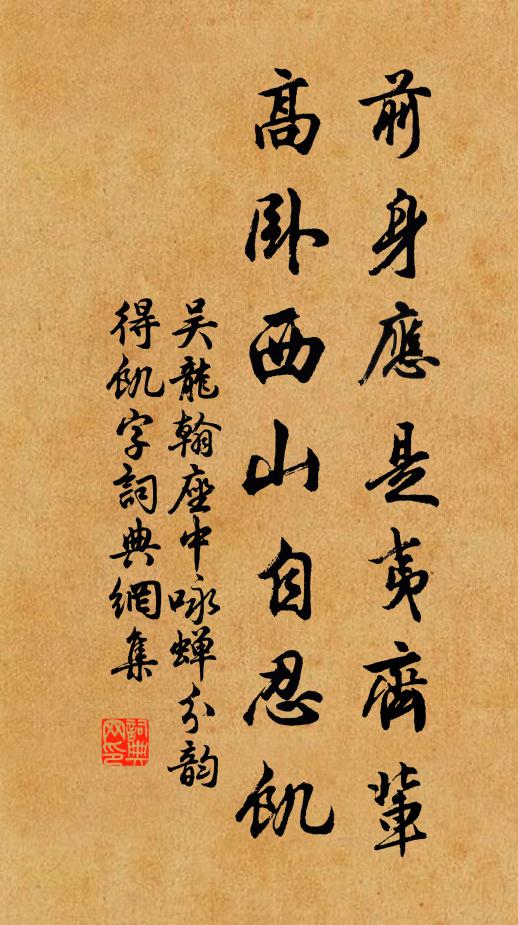 前身應是夷齊輩
高卧西山自忍飢
吴龍翰座中咏蟬分韵
得飢字詞典網集
詞典网印